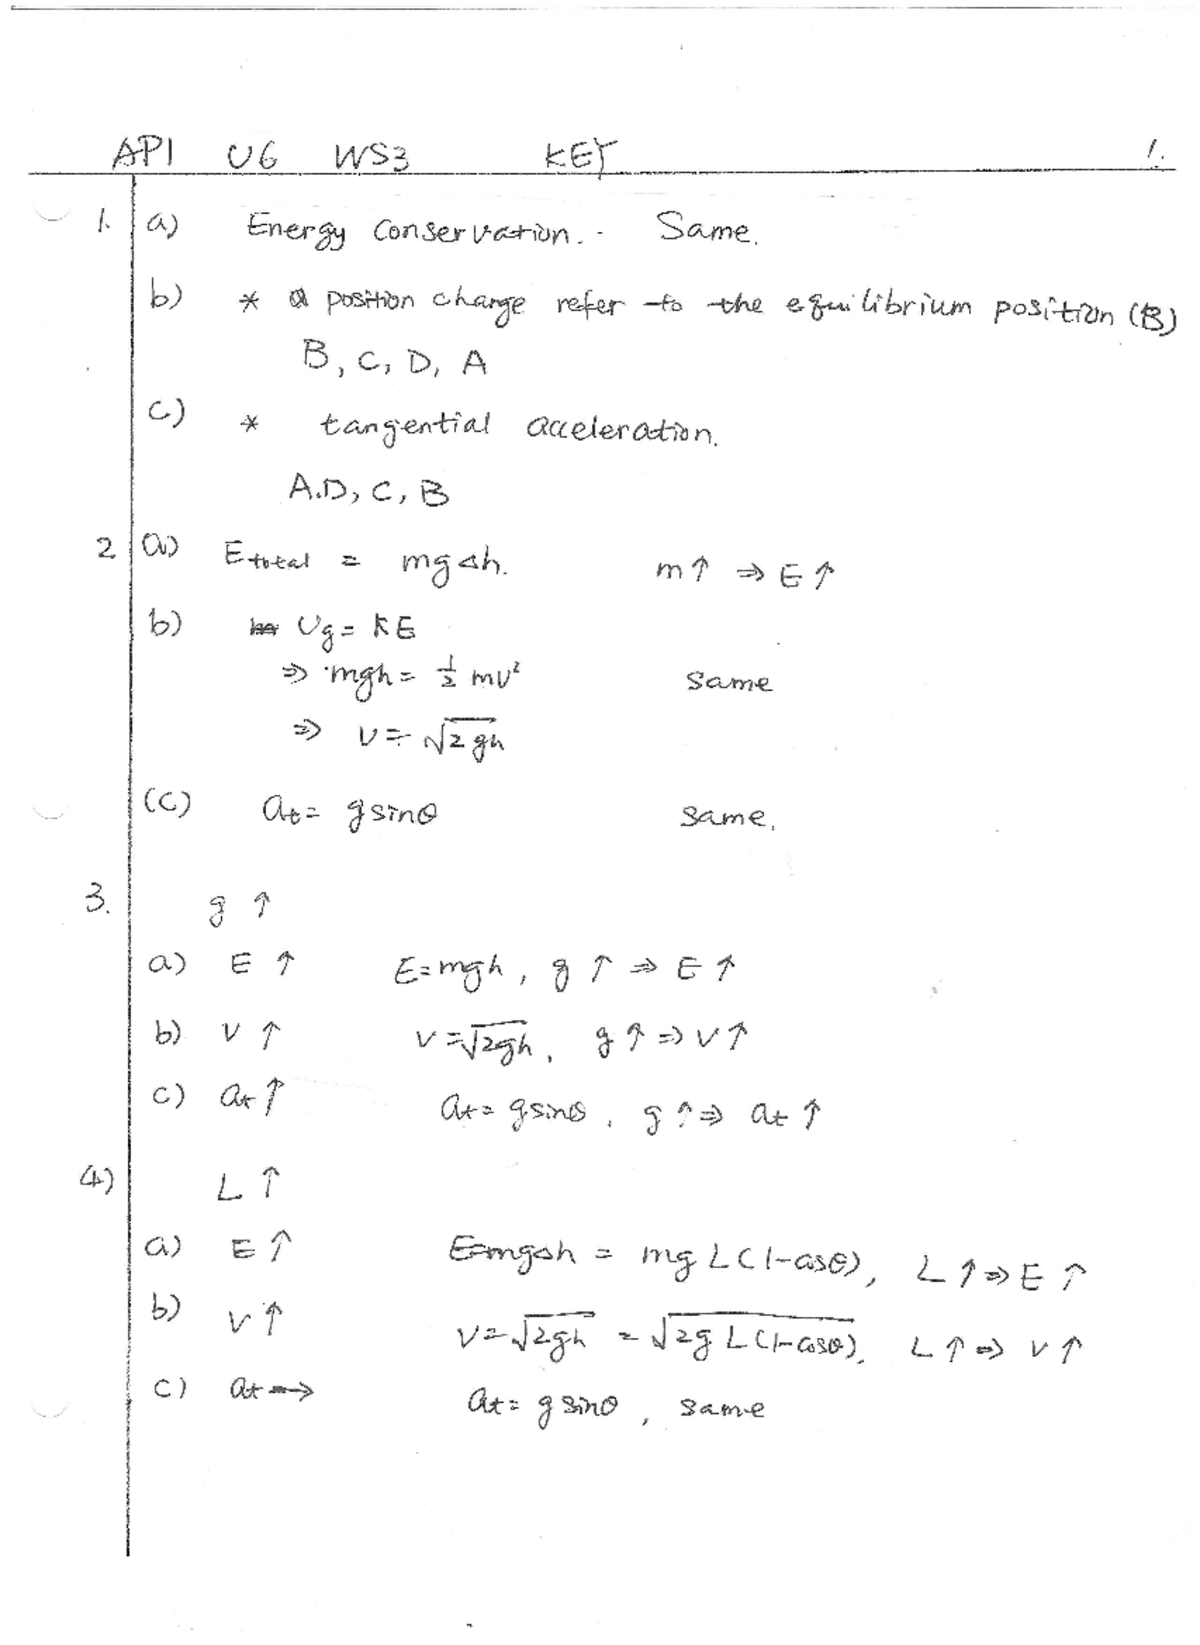 AP1 U6 WS3 KEY 1.
1. a) Energy Conservation. Same.
b) * position change refer to the equilibrium position (B)
B, C, D, A
c) * tangential acceleration.
A.D, C, B
2 a) E total = mg△h. m↑ ⇒ E↑
b) Ug = KE
⇒ mgh = 1/2 mv² same
⇒ v = √2gh
(c) at = gsinθ same.
3. g ↑
a) E ↑ E=mgh, g ↑ ⇒ E ↑
b) V ↑ v=√2gh, g↑ ⇒ v↑
c) at ↑ at = gsinθ, g↑ ⇒ at ↑
4) L ↑
a) E ↑ E=mg△h = mg L(1-cosθ), L↑ ⇒ E ↑
b) v ↑ v=√2gh = √2g L(1-cosθ), L↑ ⇒ v↑
c) at → at = g sinθ, same